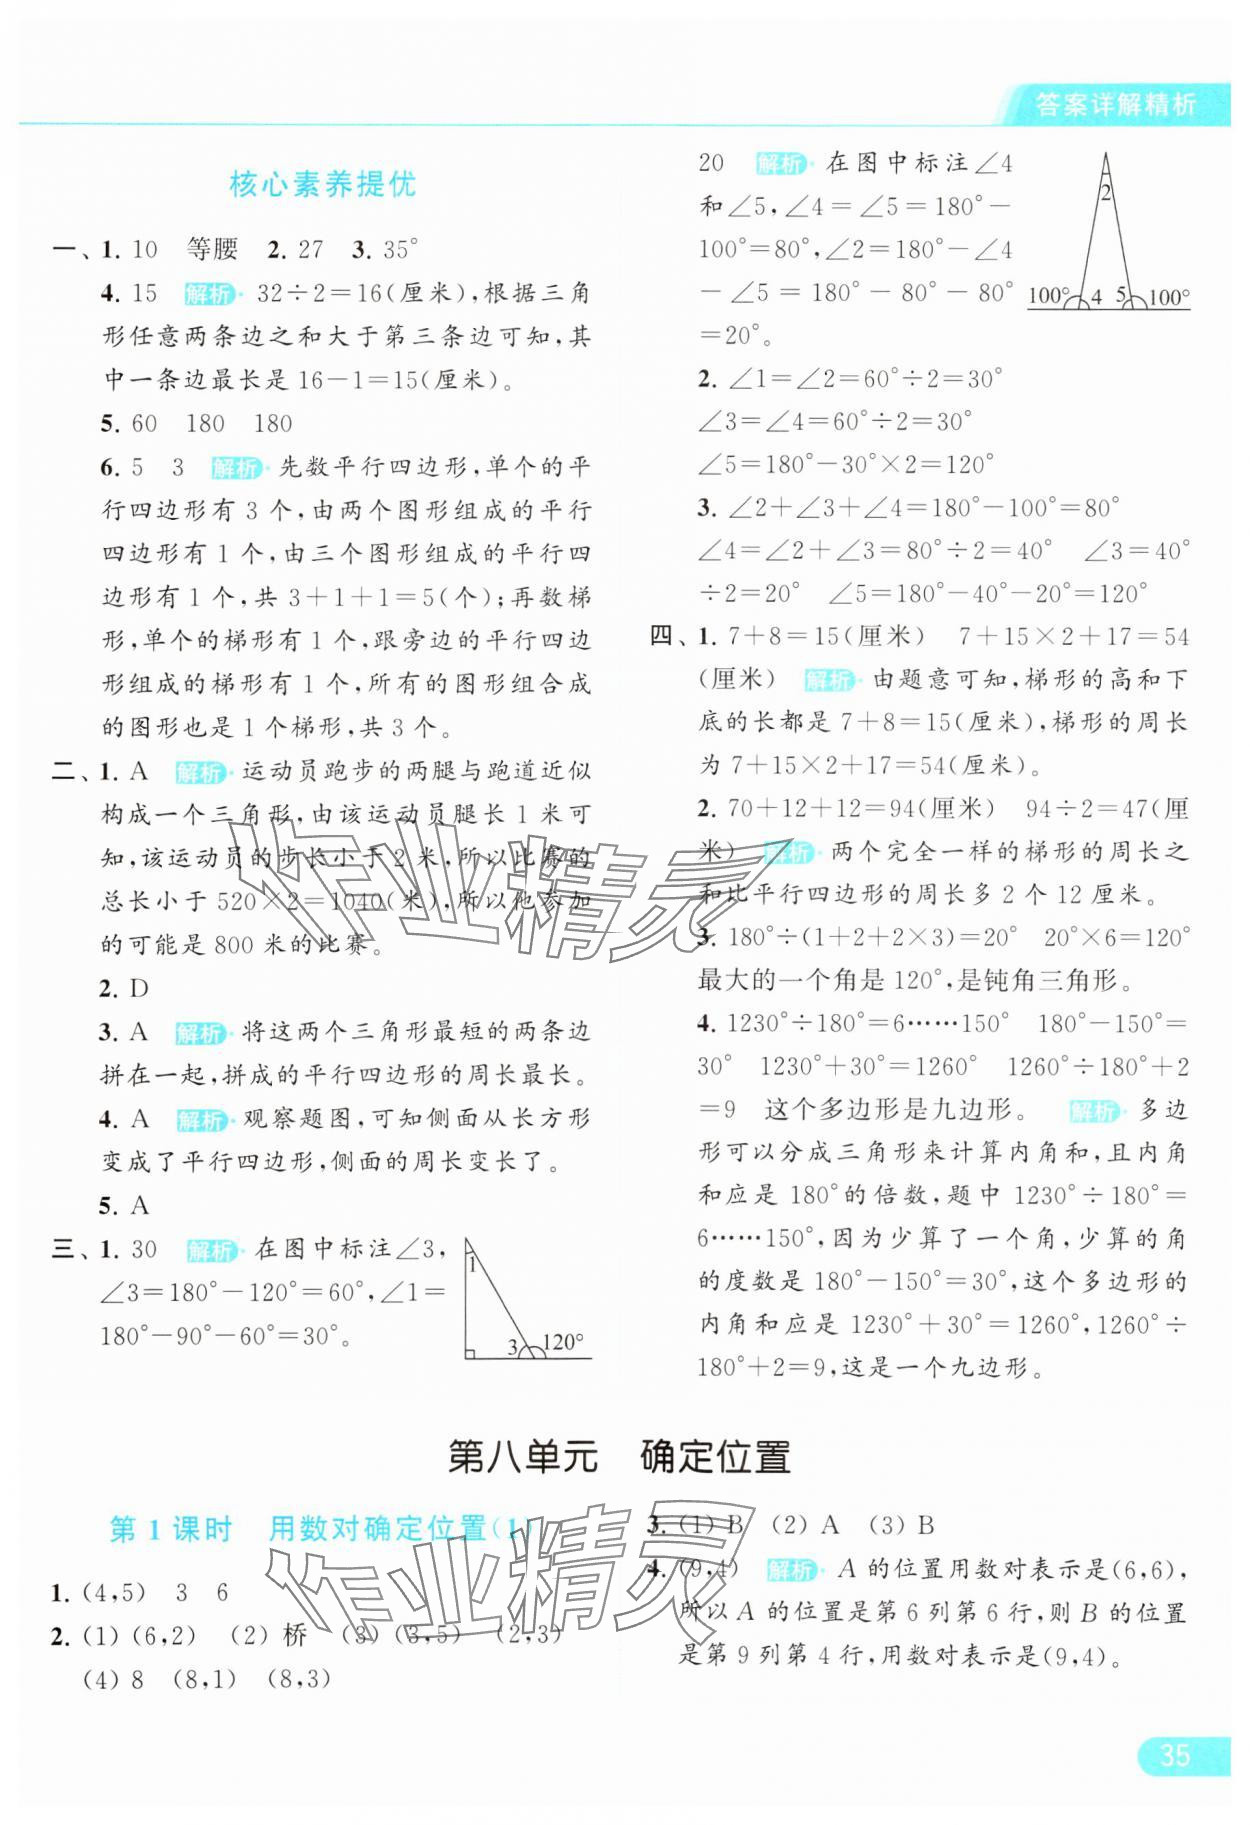 答案详解精析
核心素养提优
一、1. 10 等腰 2. 27 3. 35°
4. 15 解析·32÷2=16(厘米),根据三角
形任意两条边之和大于第三条边可知,其
中一条边最长是16-1=15(厘米)。
5. 60 180 180
6. 5 3 解析·先数平行四边形,单个的平
行四边形有3个,由两个图形组成的平行
四边形有1个,由三个图形组成的平行四
边形有1个,共3+1+1=5(个);再数梯
形,单个的梯形有1个,跟旁边的平行四边
形组成的梯形有1个,所有的图形组合成
的图形也是1个梯形,共3个。
二、1. A 解析·运动员跑步的两腿与跑道近似
构成一个三角形,由该运动员腿长1米可
知,该运动员的步长小于2米,所以比赛的
总长小于520×2=1040(米),所以他参加
的可能是800米的比赛。
2. D
3. A 解析·将这两个三角形最短的两条边
拼在一起,拼成的平行四边形的周长最长。
4. A 解析·观察题图,可知侧面从长方形
变成了平行四边形,侧面的周长变长了。
5. A
三、1. 30 解析·在图中标注∠3,
∠3=180°-120°=60°,∠1=
180°-90°-60°=30°。
1
3
120°
20 解析·在图中标注∠4
和∠5,∠4=∠5=180°-
100°=80°,∠2=180°-∠4
-∠5=180°-80°-80°
=20°。
2
100° 4 5 100°
2. ∠1=∠2=60°÷2=30°
∠3=∠4=60°÷2=30°
∠5=180°-30°×2=120°
3. ∠2+∠3+∠4=180°-100°=80°
∠4=∠2+∠3=80°÷2=40° ∠3=40°
÷2=20° ∠5=180°-40°-20°=120°
四、1. 7+8=15(厘米) 7+15×2+17=54
(厘米) 解析·由题意可知,梯形的高和下
底的长都是7+8=15(厘米),梯形的周长
为7+15×2+17=54(厘米)。
2. 70+12+12=94(厘米) 94÷2=47(厘
米) 解析·两个完全一样的梯形的周长之
和比平行四边形的周长多2个12厘米。
3. 180°÷(1+2+2×3)=20° 20°×6=120°
最大的一个角是120°,是钝角三角形。
4. 1230°÷180°=6……150° 180°-150°=
30° 1230°+30°=1260° 1260°÷180°+2
=9 这个多边形是九边形。 解析·多边
形可以分成三角形来计算内角和,且内角
和应是180°的倍数,题中1230°÷180°=
6……150°,因为少算了一个角,少算的角
的度数是180°-150°=30°,这个多边形的
内角和应是1230°+30°=1260°,1260°÷
180°+2=9,这是一个九边形。
第八单元 确定位置
第1课时 用数对确定位置(1)
1. (4,5) 3 6
2. (1) (6,2) (2) 桥 (3) (3,5) (2,3)
(4) 8 (8,1) (8,3)
3. (1) B (2) A (3) B
4. (9,4) 解析·A的位置用数对表示是(6,6),
所以A的位置是第6列第6行,则B的位置
是第9列第4行,用数对表示是(9,4)。
作业精灵
作业精灵
35